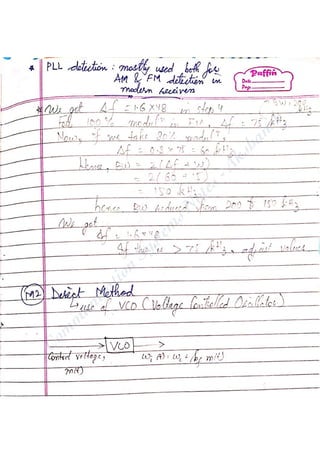 * PLL detection : mostly used both for
AM & FM detection in
modern receivers
Puffin
Date
Page
* We get Δf = 1.6 × 48 in step 4
For 100% modulⁿ in FM, Δf = 75 kHz
Now, if we take 80% modulⁿ,
Δf = 0.8 × 75 = 60 kHz
Hence, BW = 2(Δf + W)
= 2(60 + 15)
= 150 kHz
hence BW reduced from 200 to 150 kHz
We get
Δf = 1.6 × 48
Δf > 75 kHz. adjust values
M2 Direct Method
use of VCO (Voltage Controlled Oscillator)
VCO
Control voltage,
m(t)